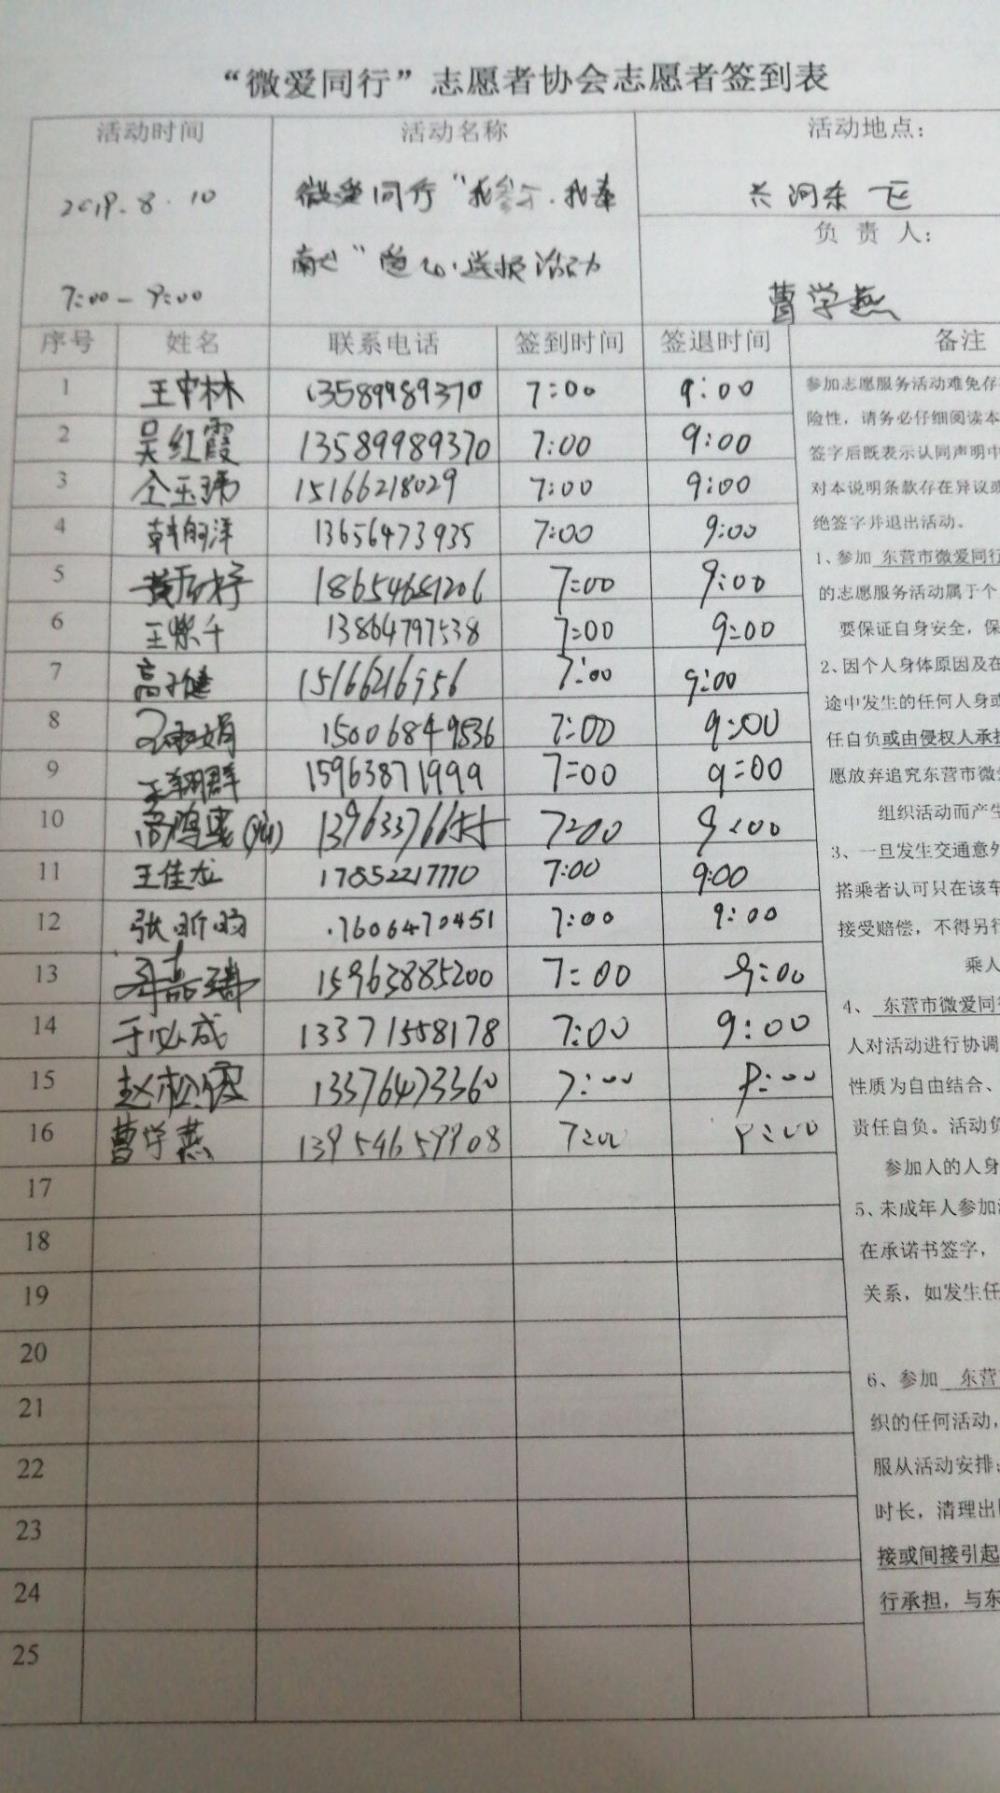 “微爱同行”志愿者协会志愿者签到表
活动时间 活动名称 活动地点：
2019.8.10 微爱同行“我参与.我奉 长河东
献” 送报活动
7:00-9:00
负 责 人：
曹学燕
序号 姓名 联系电话 签到时间 签退时间 备注
1 王 林 13589989370 7:00 9:00
2 吴红霞 13589989370 7:00 9:00
3 仝玉 15166218029 7:00 9:00
4 韩 洋 13656473935 7:00 9:00
5 黄 18654681206 7:00 9:00
6 王 千 13864797538 7:00 9:00
7 高子健 15166216956 7:00 9:00
8 娟 15006849536 7:00 9:00
9 王翔群 15963871999 7:00 9:00
10 高鸣 13963376655 7:00 9:00
11 王佳龙 17852217770 7:00 9:00
12 张昕昀 .7606470451 7:00 9:00
13 15963885200 7:00 9:00
14 于必成 13371558178 7:00 9:00
15 赵松霞 13376473360 7:00 9:00
16 曹学燕 13954659908 7:00 9:00
17
18
19
20
21
22
23
24
25
参加志愿服务活动难免存
险性，请务必仔细阅读本
签字后既表示认同声明中
对本说明条款存在异议或
绝签字并退出活动。
1、参加 东营市微爱同行
的志愿服务活动属于个
要保证自身安全，保
2、因个人身体原因及在
途中发生的任何人身或
任自负或由侵权人承担
愿放弃追究东营市微爱
组织活动而产生
3、一旦发生交通意外
搭乘者认可只在该车
接受赔偿，不得另行
乘人
4、 东营市微爱同行
人对活动进行协调
性质为自由结合、
责任自负。活动负
参加人的人身
5、未成年人参加活
在承诺书签字，
关系，如发生任
6、参加 东营
织的任何活动，
服从活动安排；
时长，清理出
接或间接引起
行承担，与东